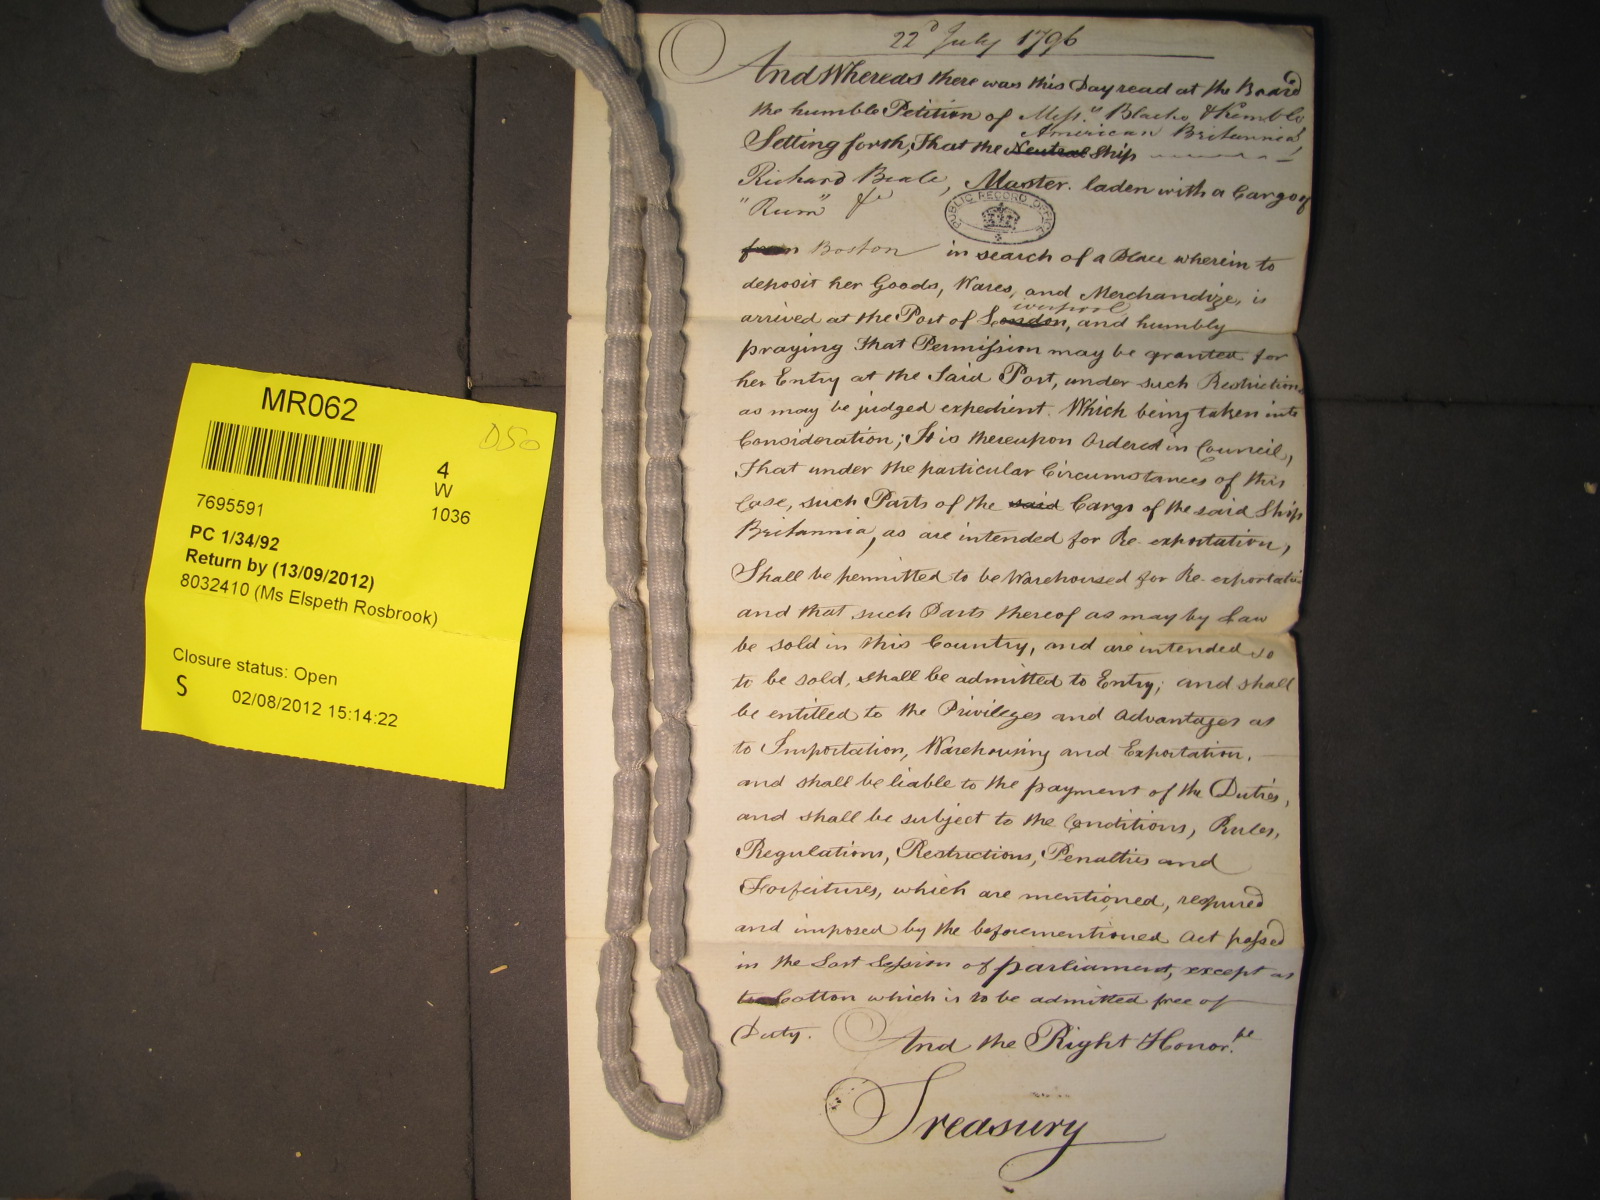 22d July 1796
And Whereas there was this Day read at the Board
the humble Petition of Messrs Blache & Kemble
American Britannia
Setting forth, That the Neutral Ship
Richard Beale, Master. laden with a Cargo of
"Rum" &c
PUBLIC RECORD OFFICE
from Boston in search of a Place wherein to
deposit her Goods, Wares, and Merchandize, is
iverpool
arrived at the Port of London, and humbly
praying That Permission may be granted for
her Entry at the Said Port, under such Restrictions
as may be judged expedient. Which being taken into
Consideration; It is thereupon Ordered in Council,
That under the particular Circumstances of this
Case, such Parts of the said Cargo of the said Ship
Britannia, as are intended for Re-exportation,
Shall be permitted to be Warehoused for Re-exportation
and that such Parts thereof as may by Law
be sold in this Country, and are intended so
to be sold, shall be admitted to Entry; and shall
be entitled to the Privileges and Advantages as
to Importation, Warehousing and Exportation,
and shall be liable to the payment of the Duties,
and shall be subject to the Conditions, Rules,
Regulations, Restrictions, Penalties and
Forfeitures, which are mentioned, required
and imposed by the beforementioned Act passed
in the Last Session of parliament, except as
to Cotton which is to be admitted free of
Duty. And the Right Honor.ble
Treasury
MR062
D50
4
W
1036
7695591
PC 1/34/92
Return by (13/09/2012)
8032410 (Ms Elspeth Rosbrook)
Closure status: Open
S
02/08/2012 15:14:22